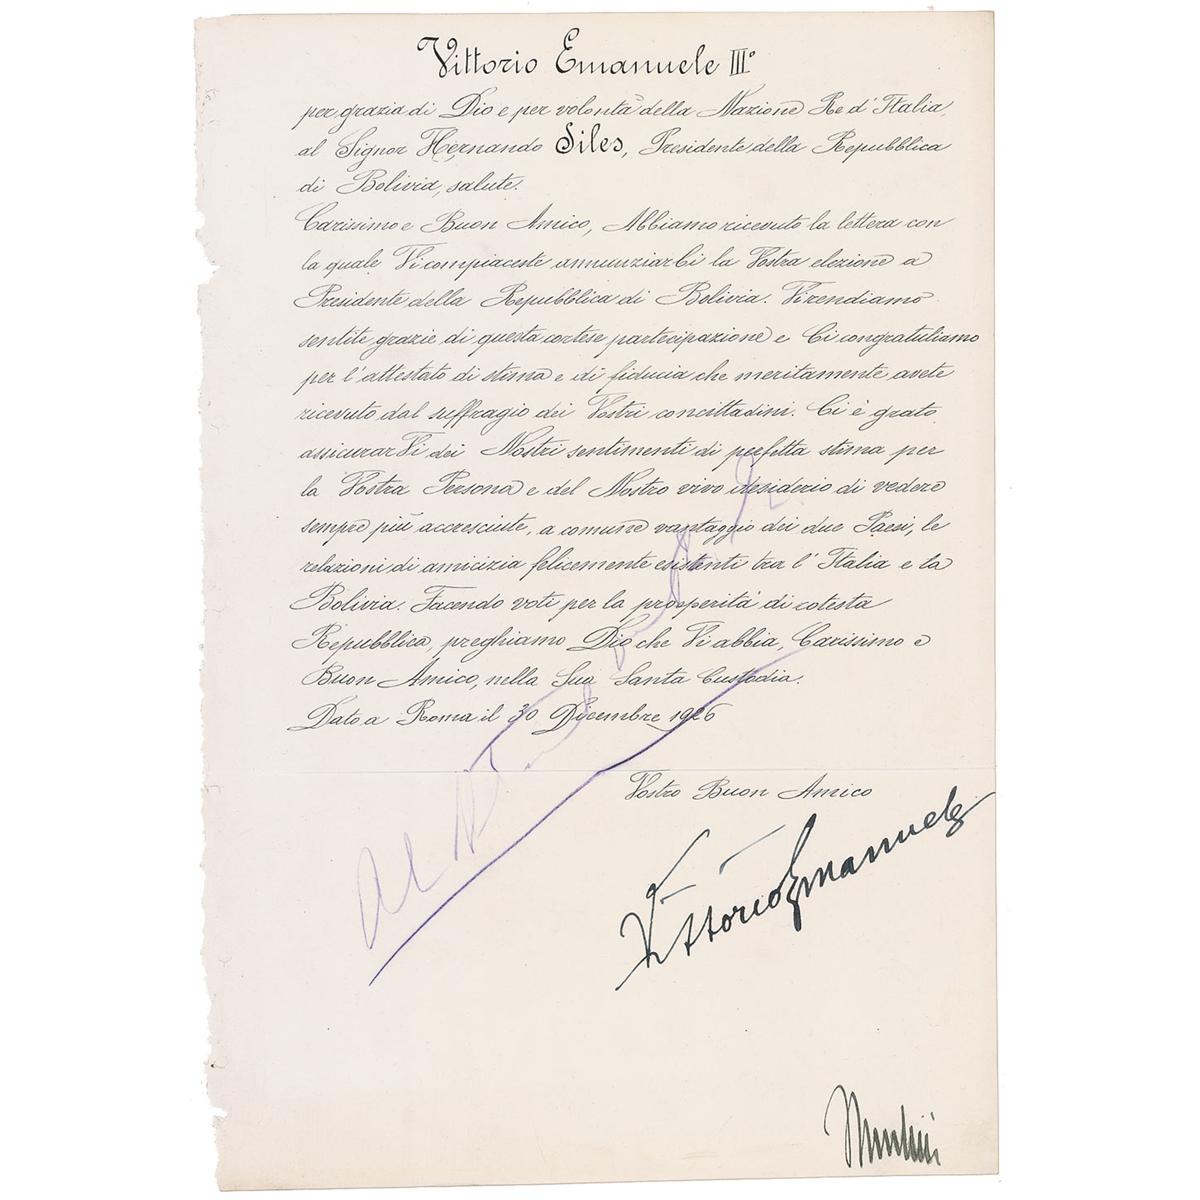 Vittorio Emanuele III°
per grazia di Dio e per volontà della Nazione Re d'Italia,
al Signor Hernando Siles, Presidente della Repubblica
di Bolivia, salute.
Carissimo e Buon Amico, Abbiamo ricevuto la lettera con
la quale Vi compiaceste annunziarCi la Vostra elezione a
Presidente della Repubblica di Bolivia. Vi rendiamo
sentite grazie di questa cortese partecipazione e Ci congratuliamo
per l'attestato di stima e di fiducia che meritamente avete
ricevuto dal suffragio dei Vostri concittadini. Ci è grato
assicurarVi dei Nostri sentimenti di perfetta stima per
la Vostra Persona e del Nostro vivo desiderio di vedere
sempre più accresciute, a comune vantaggio dei due Paesi, le
relazioni di amicizia felicemente esistenti tra l'Italia e la
Bolivia. Facendo voti per la prosperità di cotesta
Repubblica, preghiamo Dio che Vi abbia, Carissimo e
Buon Amico, nella Sua Santa Custodia.
Dato a Roma il 30 Dicembre 1926
Vostro Buon Amico
Vittorio Emanuele
Mussolini
Al